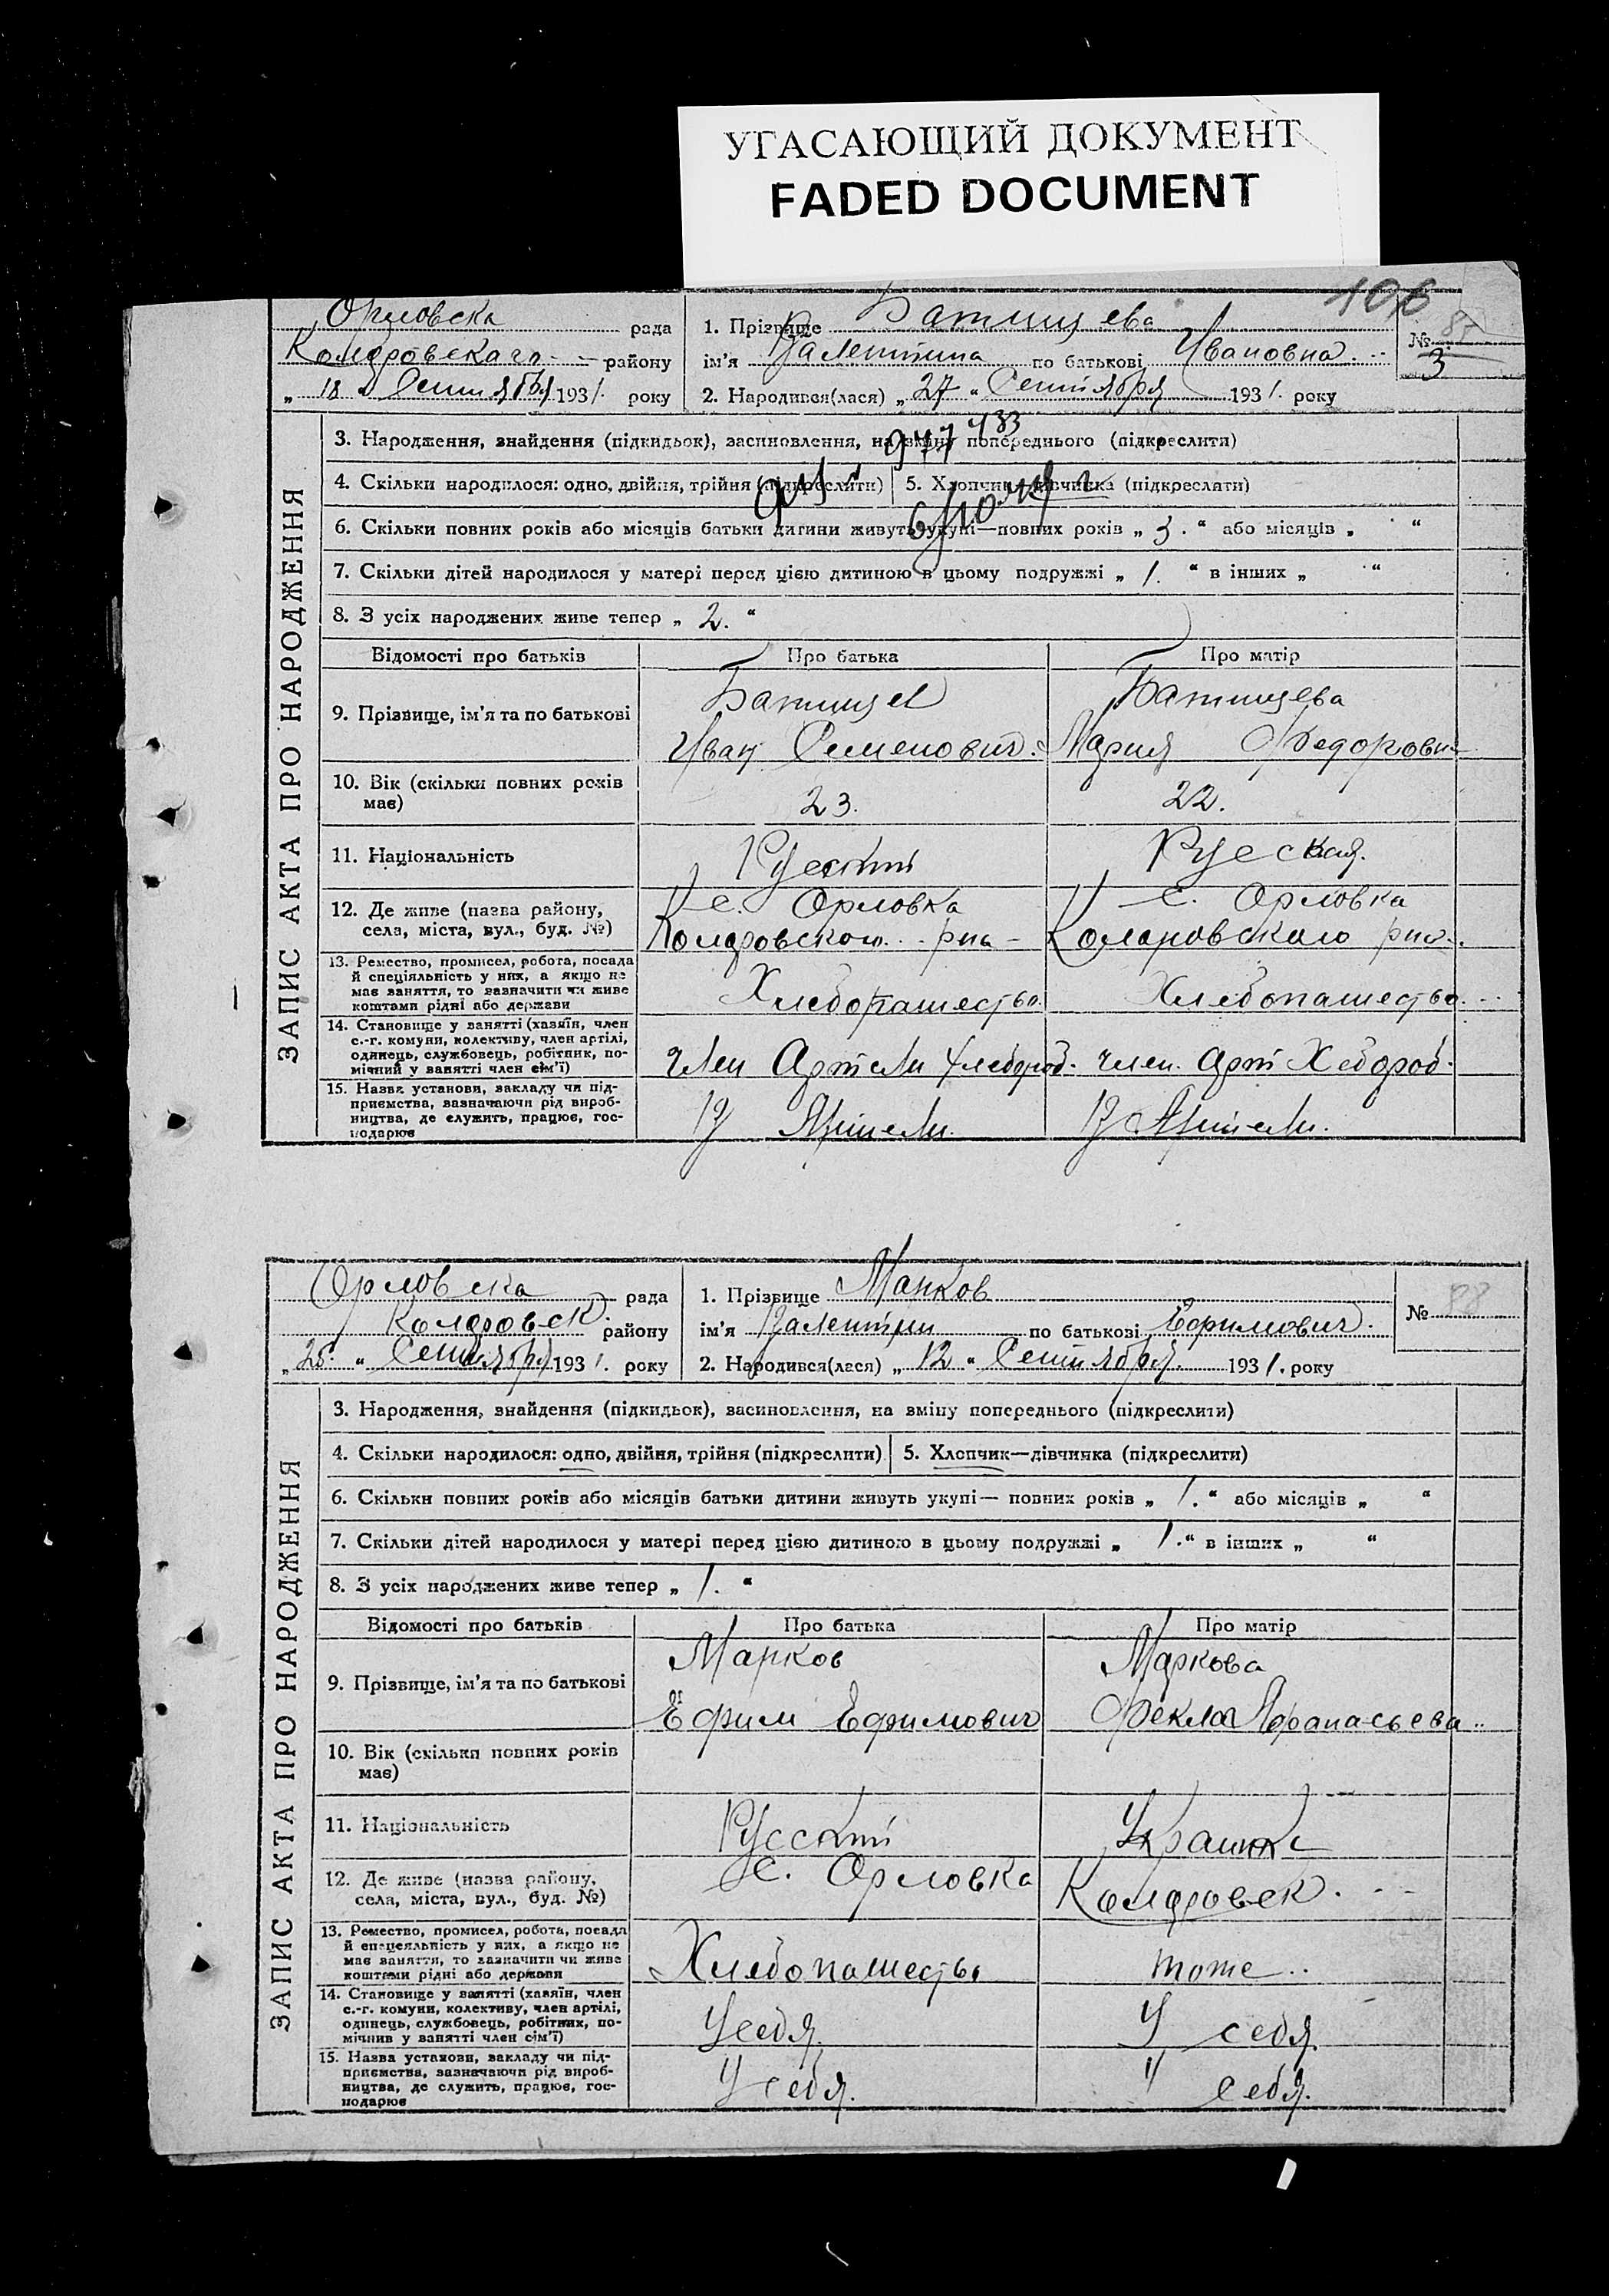 УГАСАЮЩИЙ ДОКУМЕНТ
FADED DOCUMENT
106
Орловска рада
Коларовскаго району
„ 18 " Сентября 1931. року
1. Прізвище Батищева
ім'я Валентина по батькові Ивановна.
2. Народився(лася) „ 27 " Сентября 1931. року
№ 87
3
ЗАПИС АКТА ПРО НАРОДЖЕННЯ
3. Народження, знайдення (підкидьок), засиновлення, на зміну попереднього (підкреслити)
4. Скільки народилося: одно, двійня, трійня (підкреслити)
5. Хлопчик—дівчинка (підкреслити)
6. Скільки повних років або місяців батьки дитини живуть укупі—повних років „ 3. " або місяців „ "
7. Скільки дітей народилося у матері перед цією дитиною в цьому подружжі „ 1. " в інших „ "
8. З усіх народжених живе тепер „ 2. "
Відомості про батьків
Про батька
Про матір
9. Прізвище, ім'я та по батькові
Батищев
Иван Семенович.
Батищева
Мария Федоровн
10. Вік (скільки повних років
має)
23.
22.
11. Національність
Русский
Русская.
12. Де живе (назва району,
села, міста, вул., буд. №)
с. Орловка
Коларовского рна
с. Орловка
Коларовского рна.
13. Ремество, промисел, робота, посада
й спеціяльність у них, а якщо не
має заняття, то зазначити чи живе
коштами рідні або держави
Хлебопашество.
Хлебопашество.
14. Становище у занятті (хазяїн, член
с.-г. комуни, колективу, член артілі,
одинець, службовець, робітник, по-
мічний у занятті член сім'ї)
Член Артели хлебороб.
член. арт Хебороб.
15. Назва установи, закладу чи під-
приємства, зазначаючи рід вироб-
ництва, де служить, працює, гос-
подарює
В Артели.
В Артели.
Орловска рада
Коларовск. району
„ 26. " Сентября 1931. року
1. Прізвище Марков
ім'я Валентин по батькові Ефимович.
2. Народився(лася) „ 12 " Сентября. 1931. року
№ 88
ЗАПИС АКТА ПРО НАРОДЖЕННЯ
3. Народження, знайдення (підкидьок), засиновлення, на зміну попереднього (підкреслити)
4. Скільки народилося: одно, двійня, трійня (підкреслити)
5. Хлопчик—дівчинка (підкреслити)
6. Скільки повних років або місяців батьки дитини живуть укупі— повних років „ 1. " або місяців „ "
7. Скільки дітей народилося у матері перед цією дитиною в цьому подружжі „ 1. " в інших „ "
8. З усіх народжених живе тепер „ 1. "
Відомості про батьків
Про батька
Про матір
9. Прізвище, ім'я та по батькові
Марков
Ефим Ефимович
Маркова
Фекла Афанасьева..
10. Вік (скільки повних років
має)
11. Національність
Русский
Украинка
12. Де живе (назва району,
села, міста, вул., буд. №)
с. Орловка
Коларовск.
13. Ремество, промисел, робота, посада
й спеціяльність у них, а якщо не
має заняття, то зазначити чи живе
коштами рідні або держави
Хлебопашество
тоже..
14. Становище у занятті (хазяїн, член
с.-г. комуни, колективу, член артілі,
одинець, службовець, робітник, по-
мічник у занятті член сім'ї)
У себя.
У себя.
15. Назва установи, закладу чи під-
приємства, зазначаючи рід вироб-
ництва, де служить, працює, гос-
подарює
У себя.
У себя.